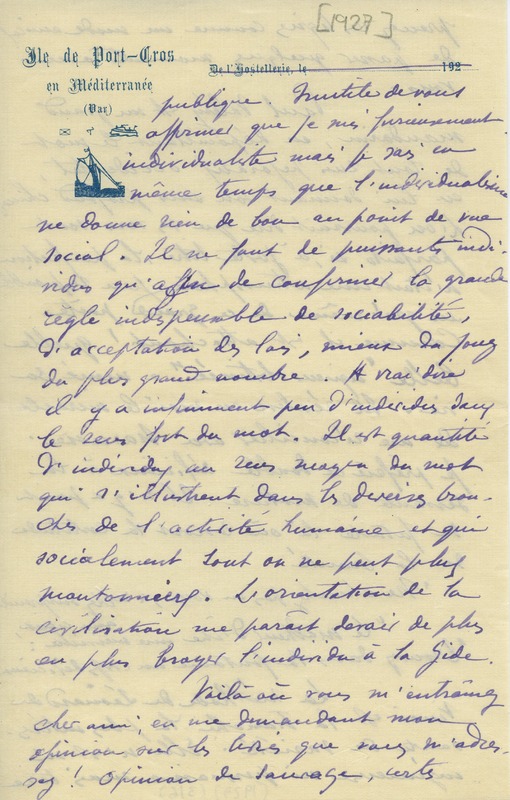 [1927]
Ile de Port-Cros
en Méditerranée
(Var)
De l'Hostellerie, le 192
publique. Inutile de vous
affirmer que je suis furieusement
individualiste mais je sais en
même temps que l'individualisme
ne donne rien de bon au point de vue
social. Il ne faut de puissants indi-
vidus qu'afin de confirmer la grande
règle indispensable de sociabilité,
d'acceptation des lois, mieux du joug
du plus grand nombre. A vrai dire
il y a infiniment peu d'individus dans
le sens fort du mot. Il est quantité
d'individus au sens moyen du mot
qui s'illustrent dans les diverses bran-
ches de l'activité humaine et qui
socialement sont on ne peut plus
moutonniers. L'orientation de la
civilisation me paraît devoir de plus
en plus broyer l'individu à la Gide.
Voilà où vous m'entraînez
cher ami, en me demandant mon
opinion sur les livres que vous m'adres-
sez! Opinion de sauvage, certes